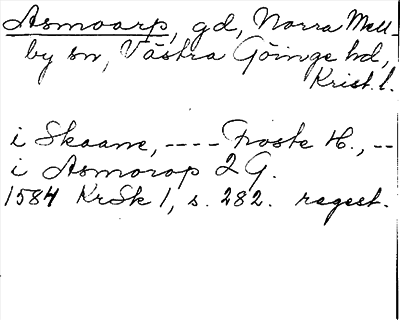 Asmoarp, gd, Norra Mell-
by sn, Västra Göinge hd,
Krist. l.
i Skaane, ---- Froste H., --
i Asmorop 2 G.
1584 KrSk 1, s. 282. regest.